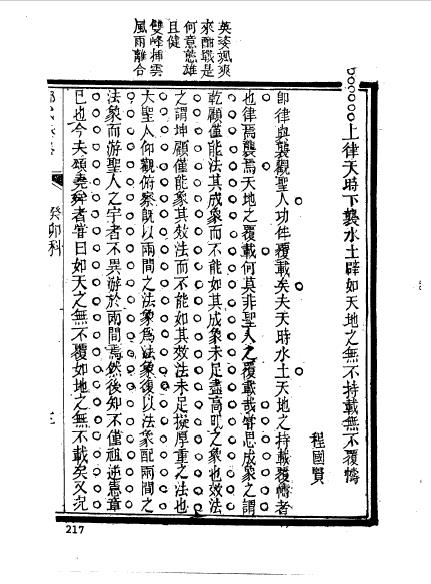 英姿颯爽
來酣戰是
何意態雄
且健
雙峰插雲
風雨離合
上律天時下襲水土辟如天地之無不持載無不覆幬
程國賢
即律與襲觀聖人功侔覆載矣夫天時水土天地之持載覆幬者
也律焉襲焉天地之覆載何莫非聖人之覆載哉嘗思成象之謂
乾顧僅能法其成象而不能如其成象未足盡高明之象也效法
之謂坤顧僅能象其效法而不能如其效法未足擬厚重之法也
大聖人仰觀俯察既以兩間之法象為法象復以法象配兩間之
法象而游聖人之宇者不異游於兩間焉然後知不僅祖述憲章
已也今夫頌堯舜者嘗曰如天之無不覆如地之無不載矣又況
癸卯科
217